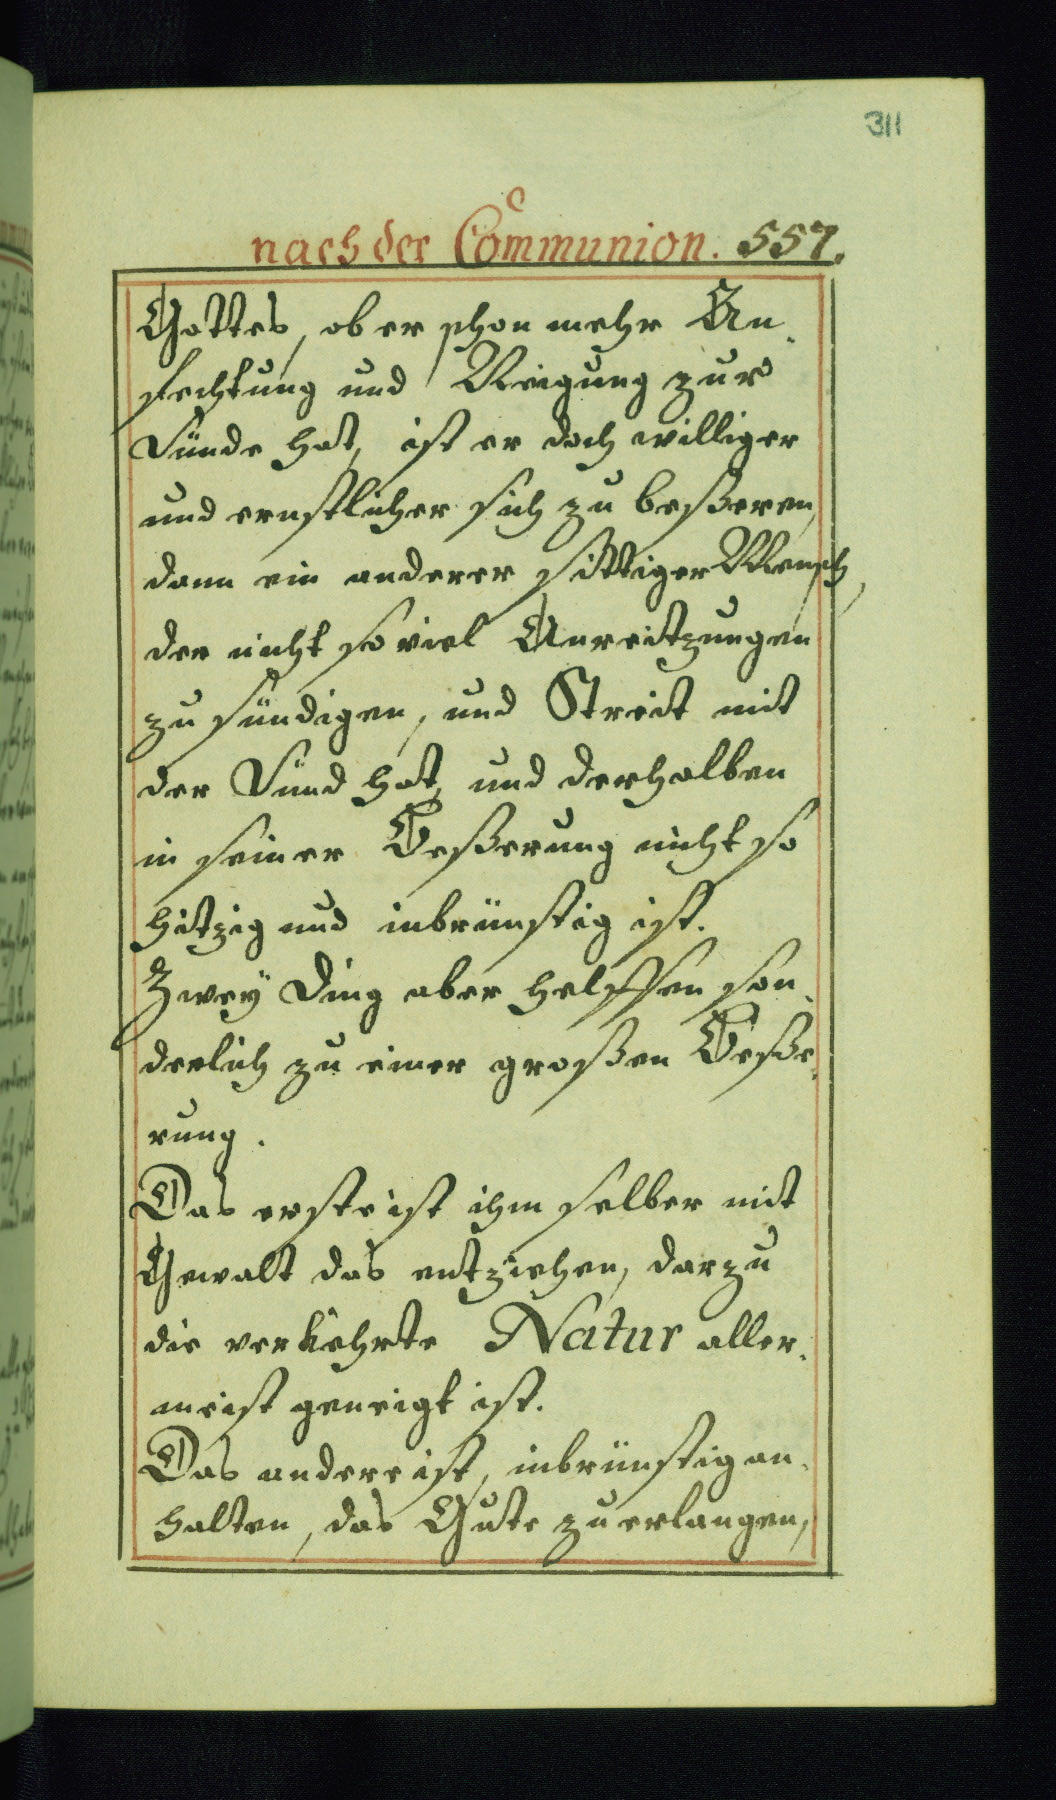 311
nach der Communion. 557.
Gottes, ob er schon mehr An-
fechtung und Neigung zur
Sünde hat, ist er doch williger
und ernstlicher sich zu beßeren,
dann ein anderer sittiger Mensch,
der nicht so viel Anreitzungen
zu sündigen, und Streit mit
der Sünd hat, und derhalben
in seiner Beßerung nicht so
hitzig und inbrünstig ist.
Zwey Ding aber helffen son-
derlich zu einer großen Beße-
rung.
Das erste ist ihm selber mit
Gewalt das entziehen, darzu
die verkehrte Natur aller-
meist geneigt ist.
Das andere ist, inbrünstig an-
halten, das Gute zu erlangen,